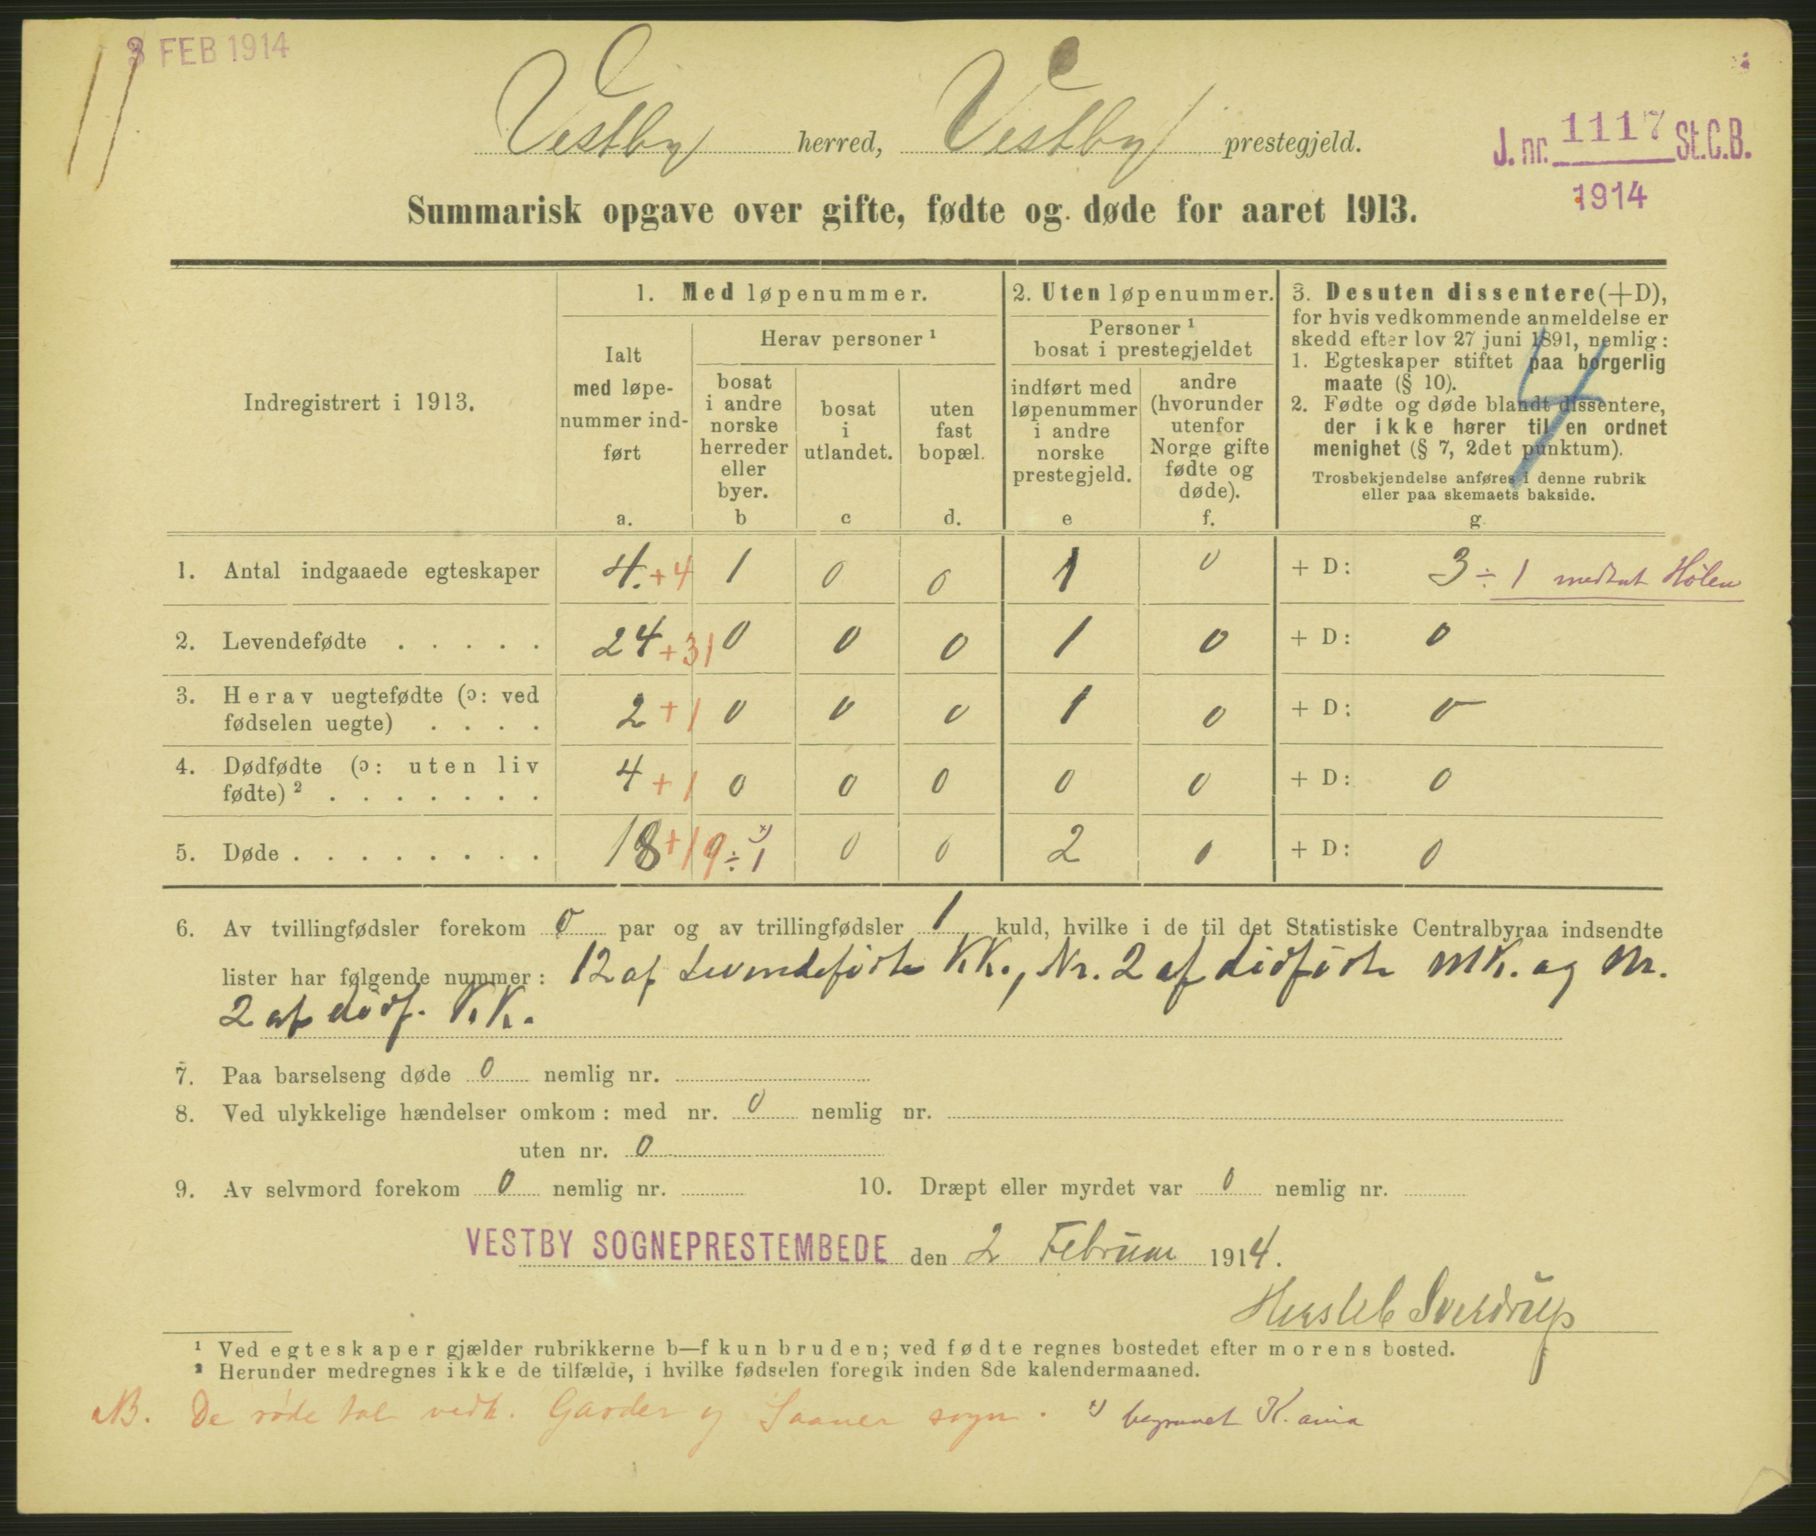 3 FEB 1914
Vestby herred, Vestby prestegjeld.
J. nr. 1117 St.C.B.
1914
Summarisk opgave over gifte, fødte og døde for aaret 1913.
Indregistrert i 1913.
1. Med løpenummer.
Ialt
med løpe-
nummer ind-
ført
a.
Herav personer ¹
bosat
i andre
norske
herreder
eller
byer.
b
bosat
i
utlandet.
c
uten
fast
bopæl.
d.
2. Uten løpenummer.
Personer ¹
bosat i prestegjeldet
indført med
løpenummer
i andre
norske
prestegjeld.
e
andre
(hvorunder
utenfor
Norge gifte
fødte og
døde).
f.
3. Desuten dissentere (+D),
for hvis vedkommende anmeldelse er
skedd efter lov 27 juni 1891, nemlig:
1. Egteskaper stiftet paa borgerlig
maate (§ 10).
2. Fødte og døde blandt dissentere,
der ikke hører til en ordnet
menighet (§ 7, 2det punktum).
Trosbekjendelse anføres i denne rubrik
eller paa skemaets bakside.
g.
4
1. Antal indgaaede egteskaper 4. + 4 1 0 0 1 0 + D: 3 ÷ 1 medtat Hølen
2. Levendefødte . . . . . 24 + 31 0 0 0 1 0 + D: 0
3. Herav uegtefødte (ɔ: ved
fødselen uegte) . . . . 2 + 1 0 0 0 1 0 + D: 0
4. Dødfødte (ɔ: uten liv
fødte) ² . . . . . . . 4 + 1 0 0 0 0 0 + D: 0
5. Døde . . . . . . . . . 18 + 19 ÷ 1 ˣ⁾ 0 0 2 0 + D: 0
6. Av tvillingfødsler forekom 0 par og av trillingfødsler 1 kuld, hvilke i de til det Statistiske Centralbyraa indsendte
lister har følgende nummer: 12 af Levendefödte KK., Nr. 2 af dödfödte MK. og Nr.
2 af dödf. KK.
7. Paa barselseng døde 0 nemlig nr.
8. Ved ulykkelige hændelser omkom: med nr. 0 nemlig nr.
uten nr. 0
9. Av selvmord forekom 0 nemlig nr. 10. Dræpt eller myrdet var 0 nemlig nr.
VESTBY SOGNEPRESTEMBEDE den 2 Februar 1914.
Hersleb Sverdrup
¹ Ved egteskaper gjælder rubrikkerne b—f kun bruden; ved fødte regnes bostedet efter morens bosted.
² Herunder medregnes ikke de tilfælde, i hvilke fødselen foregik inden 8de kalendermaaned.
NB. De røde tal vedk. Garder og Saaner sogn. ˣ⁾ begravet K. ania